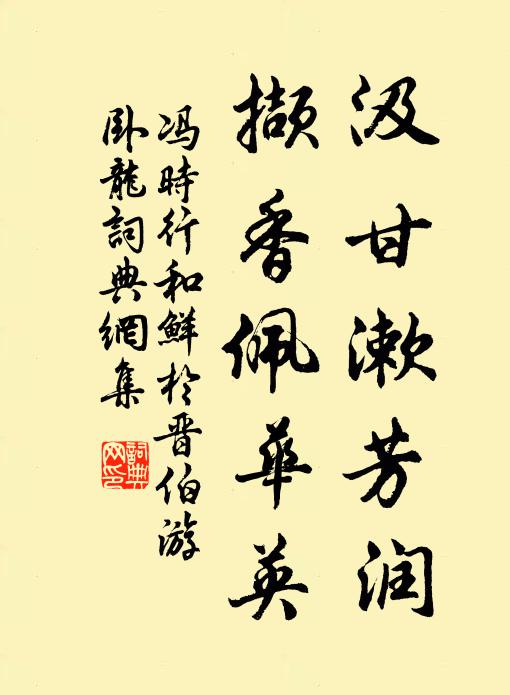 汲甘漱芳润
撷香佩華英
冯時行和鮮於晋伯游
卧龍詞典網集
詞典网印